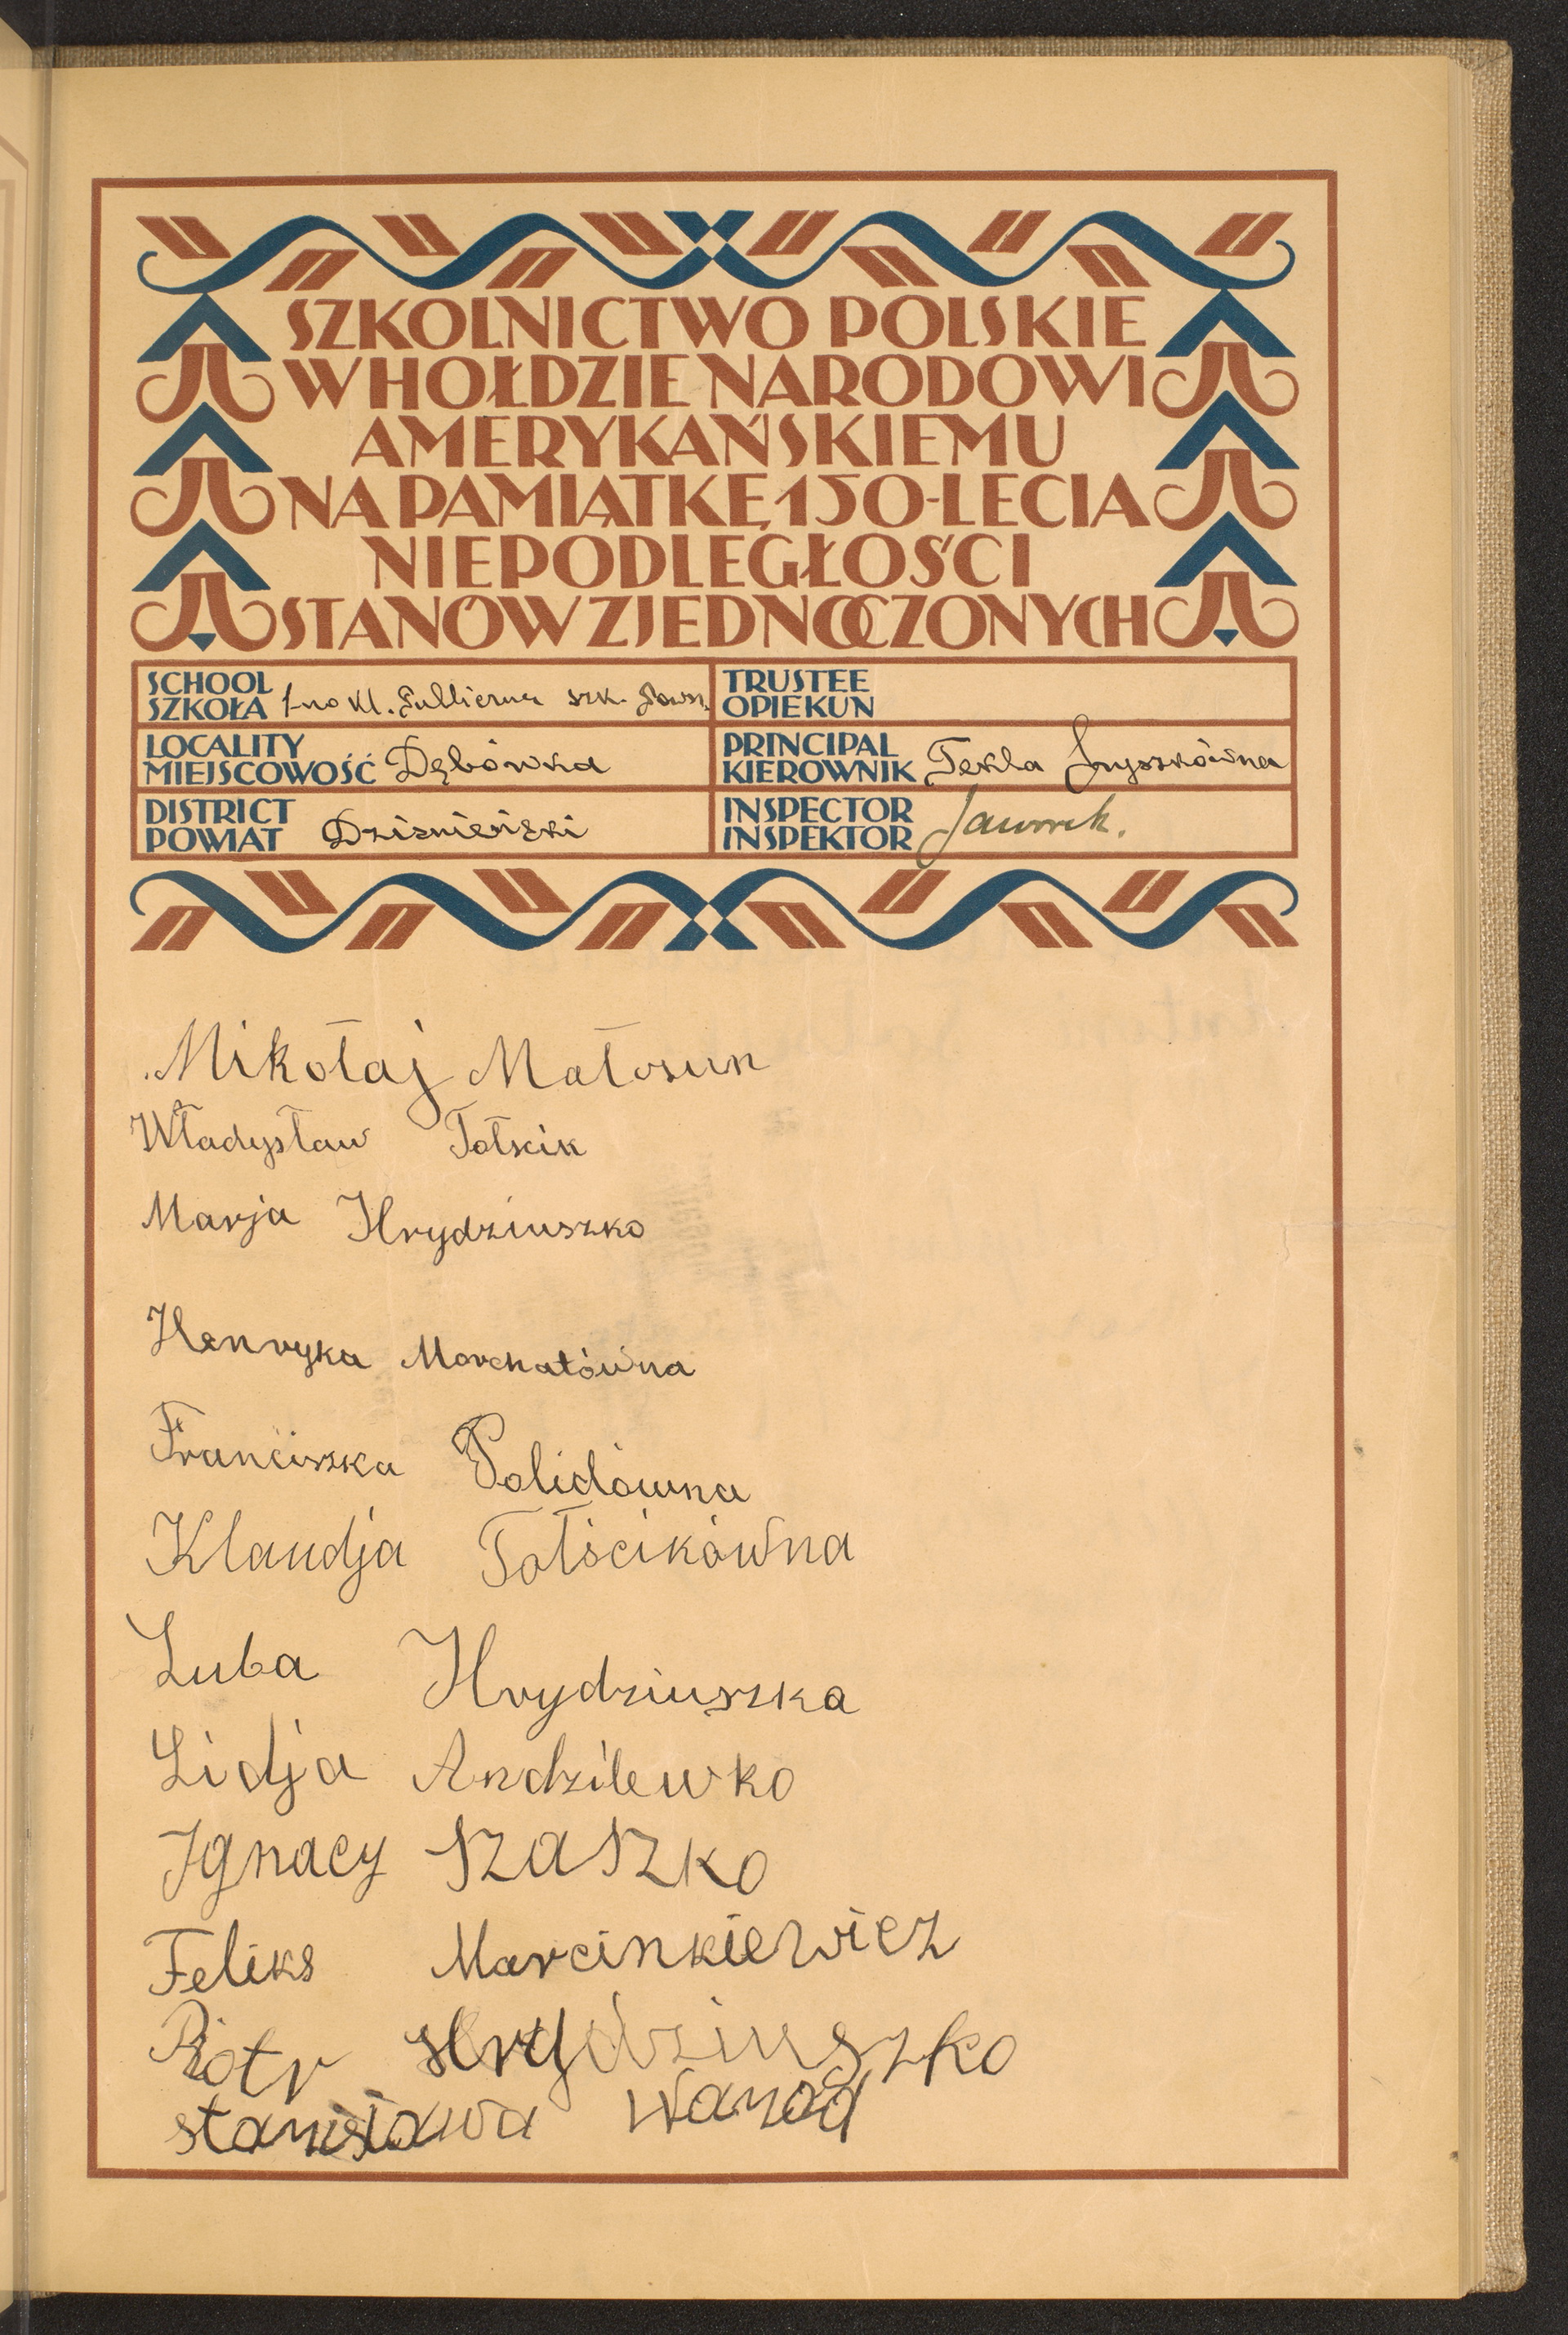 SZKOLNICTWO POLSKIE
W HOŁDZIE NARODOWI
AMERYKAŃSKIEMU
NA PAMIĄTKĘ 150-LECIA
NIEPODLEGŁOŚCI
STANÓW ZJEDNOCZONYCH
SCHOOL
SZKOŁA 1-no kl. Publiczna szk. Pows.
TRUSTEE
OPIEKUN
LOCALITY
MIEJSCOWOŚĆ Dębówka
PRINCIPAL
KIEROWNIK Tekla
DISTRICT
POWIAT Dziśnieński
INSPECTOR
INSPEKTOR
Mikołaj Małosun
Władysław Tołscik
Marja Hrydziuszko
Henryka Morchatówna
Franciszka Polidówna
Klaudja Tołścikówna
Luba Hrydziuszka
Lidja Andzilewko
Ignacy Szaszko
Feliks Marcinkiewicz
Piotr Hrydziuszko
Stanisława